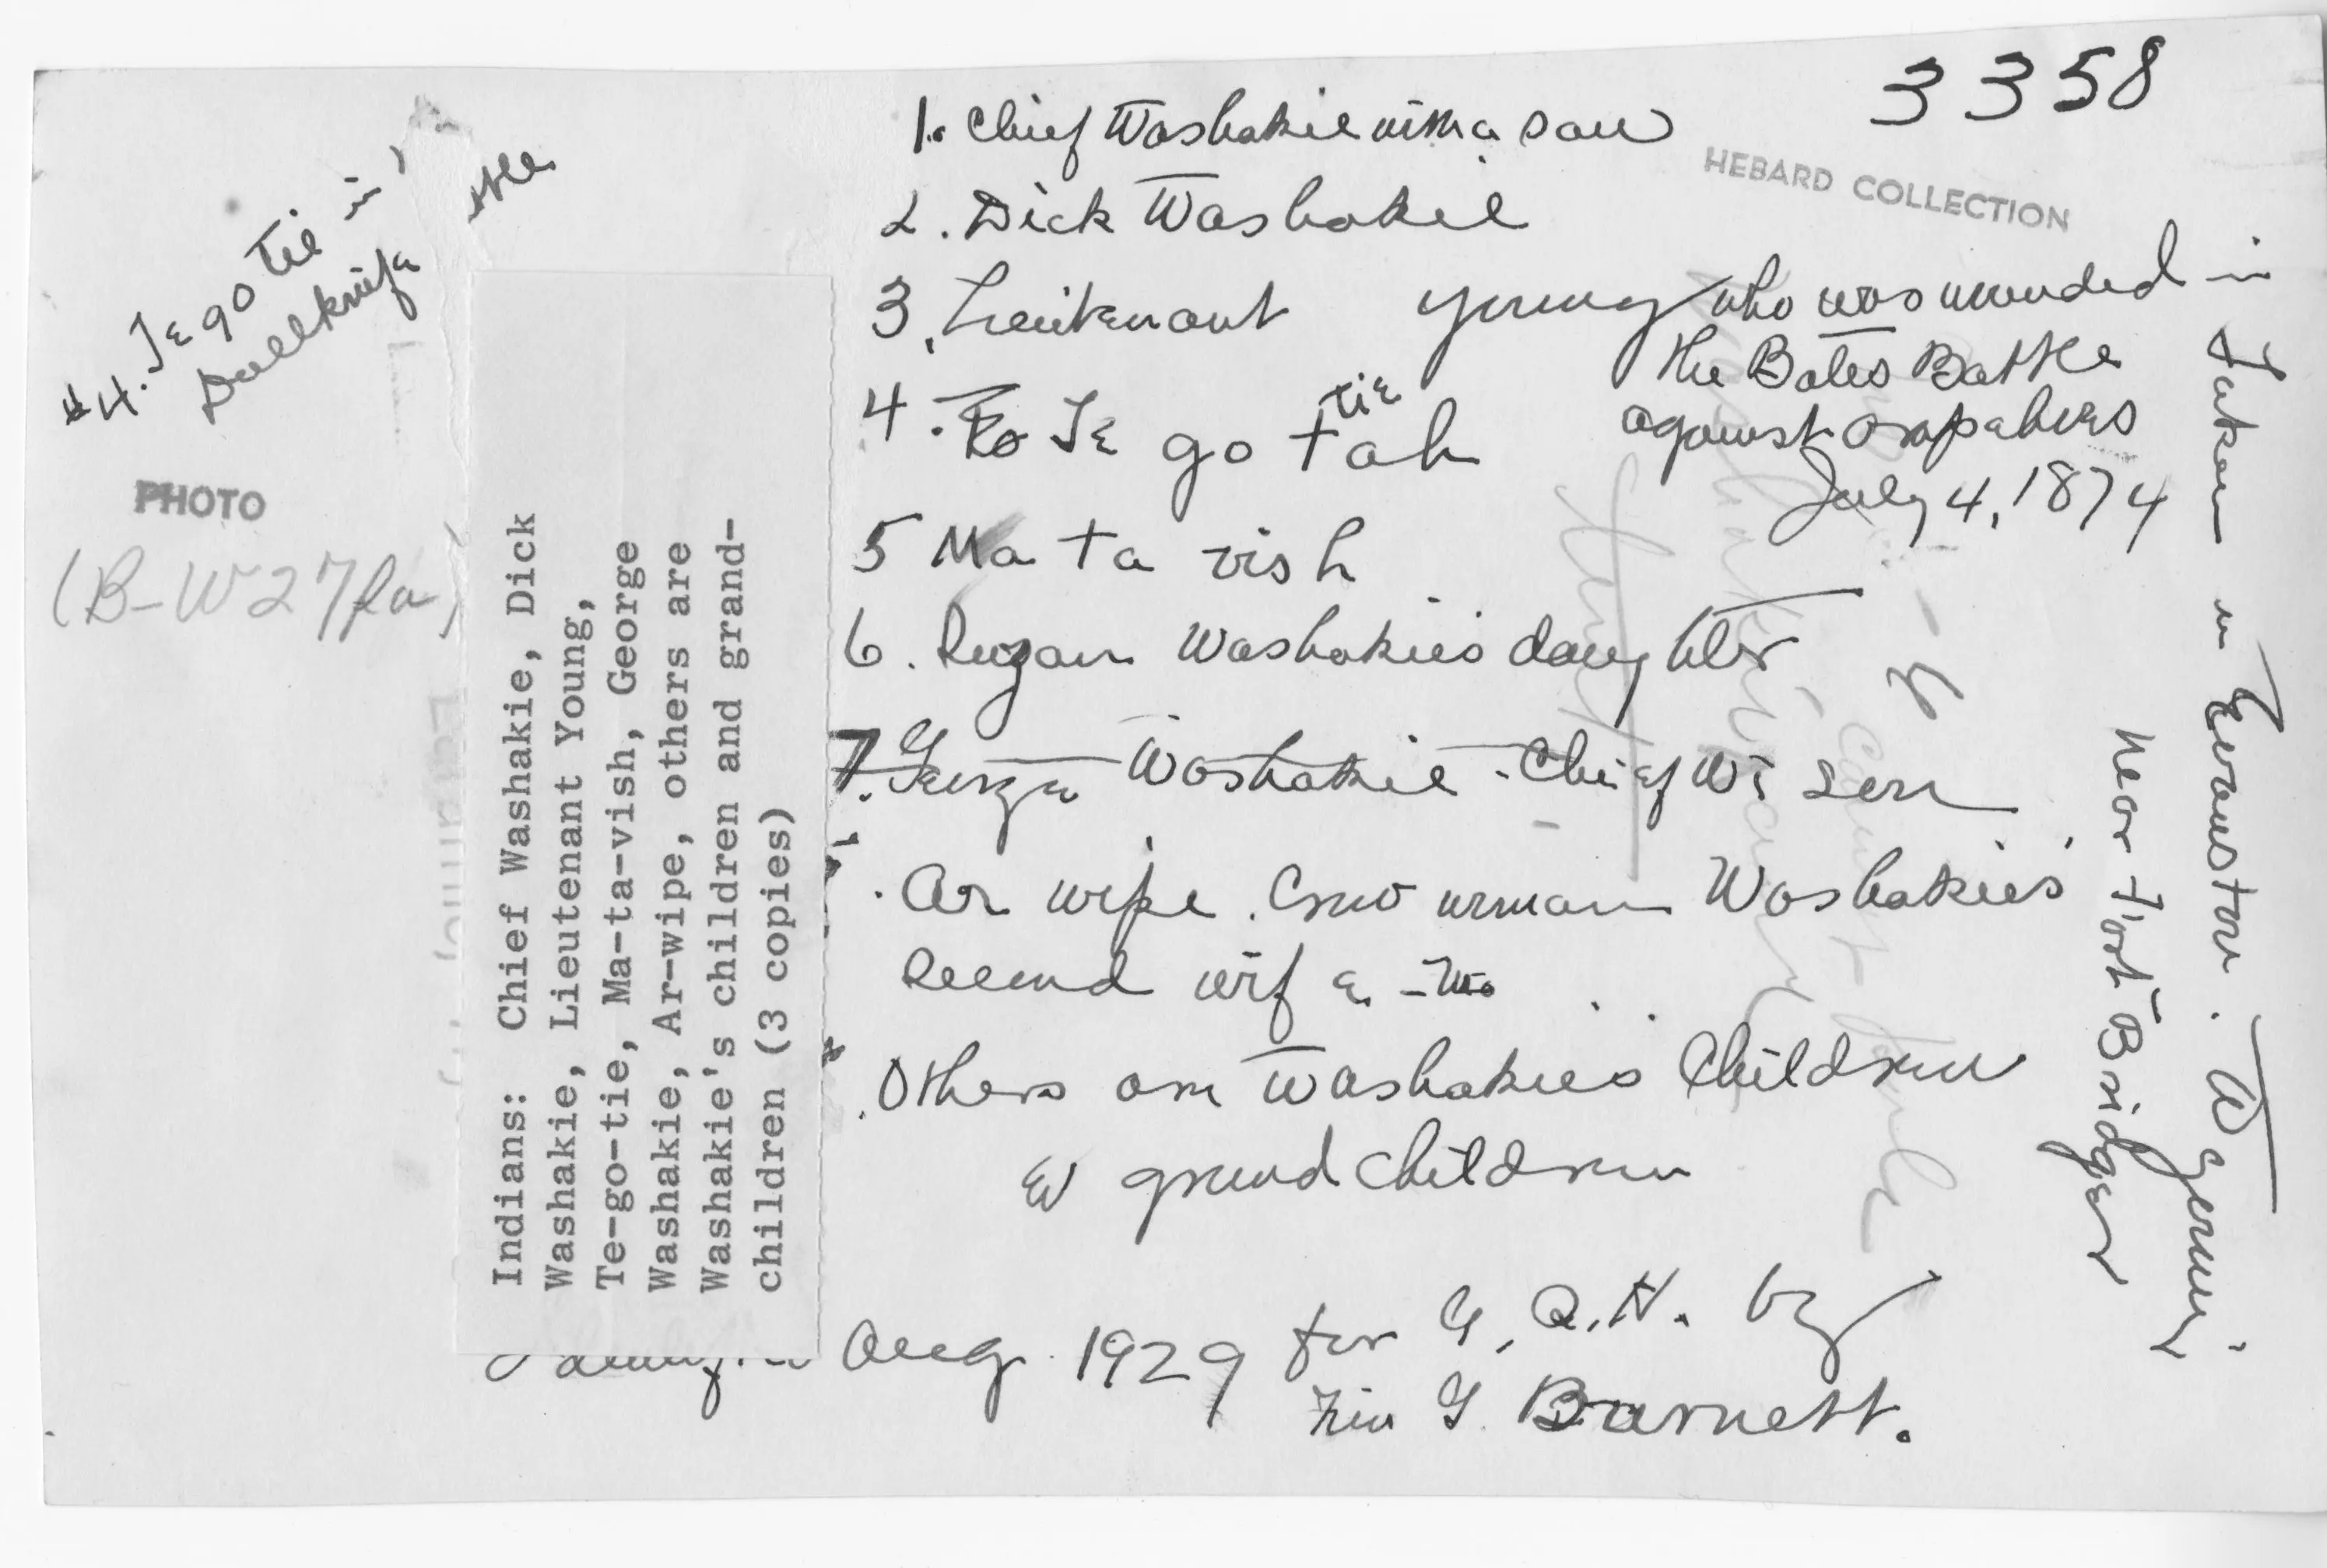 3358
HEBARD COLLECTION
1. Chief Washakie with a
2. Dick Washakie
3. Lieutenant Young who was wounded in
the Bates Battle
against Arapahoes
July 4, 1874
4. Te go tie
5 Ma ta vish
6. Washakie's daughter
7. George Washakie - Chief W's son
Ar wipe. Crow woman Washakie's
second wife.
Others are Washakie's Children
& grand children
Aug. 1929 for G. R. H. by
F. G. Burnett.
Taken in Evanston. Wyoming.
Near Fort Bridger
#4. Te go tie in
Dull knife
PHOTO
(B-W27
Indians: Chief Washakie, Dick
Washakie, Lieutenant Young,
Te-go-tie, Ma-ta-vish, George
Washakie, Ar-wipe, others are
Washakie's children and grand-
children (3 copies)